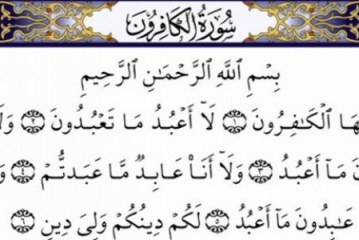 سُورَةُ الكَافِرُونَ
بِسْمِ اللَّهِ الرَّحْمَـٰنِ الرَّحِيمِ
ـهَا الْكَـٰفِرُونَ ۝١ لَآ أَعْبُدُ مَا تَعْبُدُونَ ۝٢ وَلَا
نَ مَآ أَعْبُدُ ۝٣ وَلَآ أَنَا۠ عَابِدٌ مَّا عَبَدتُّمْ ۝٤
عَـٰبِدُونَ مَآ أَعْبُدُ ۝٥ لَكُمْ دِينُكُمْ وَلِىَ دِينِ ۝٦